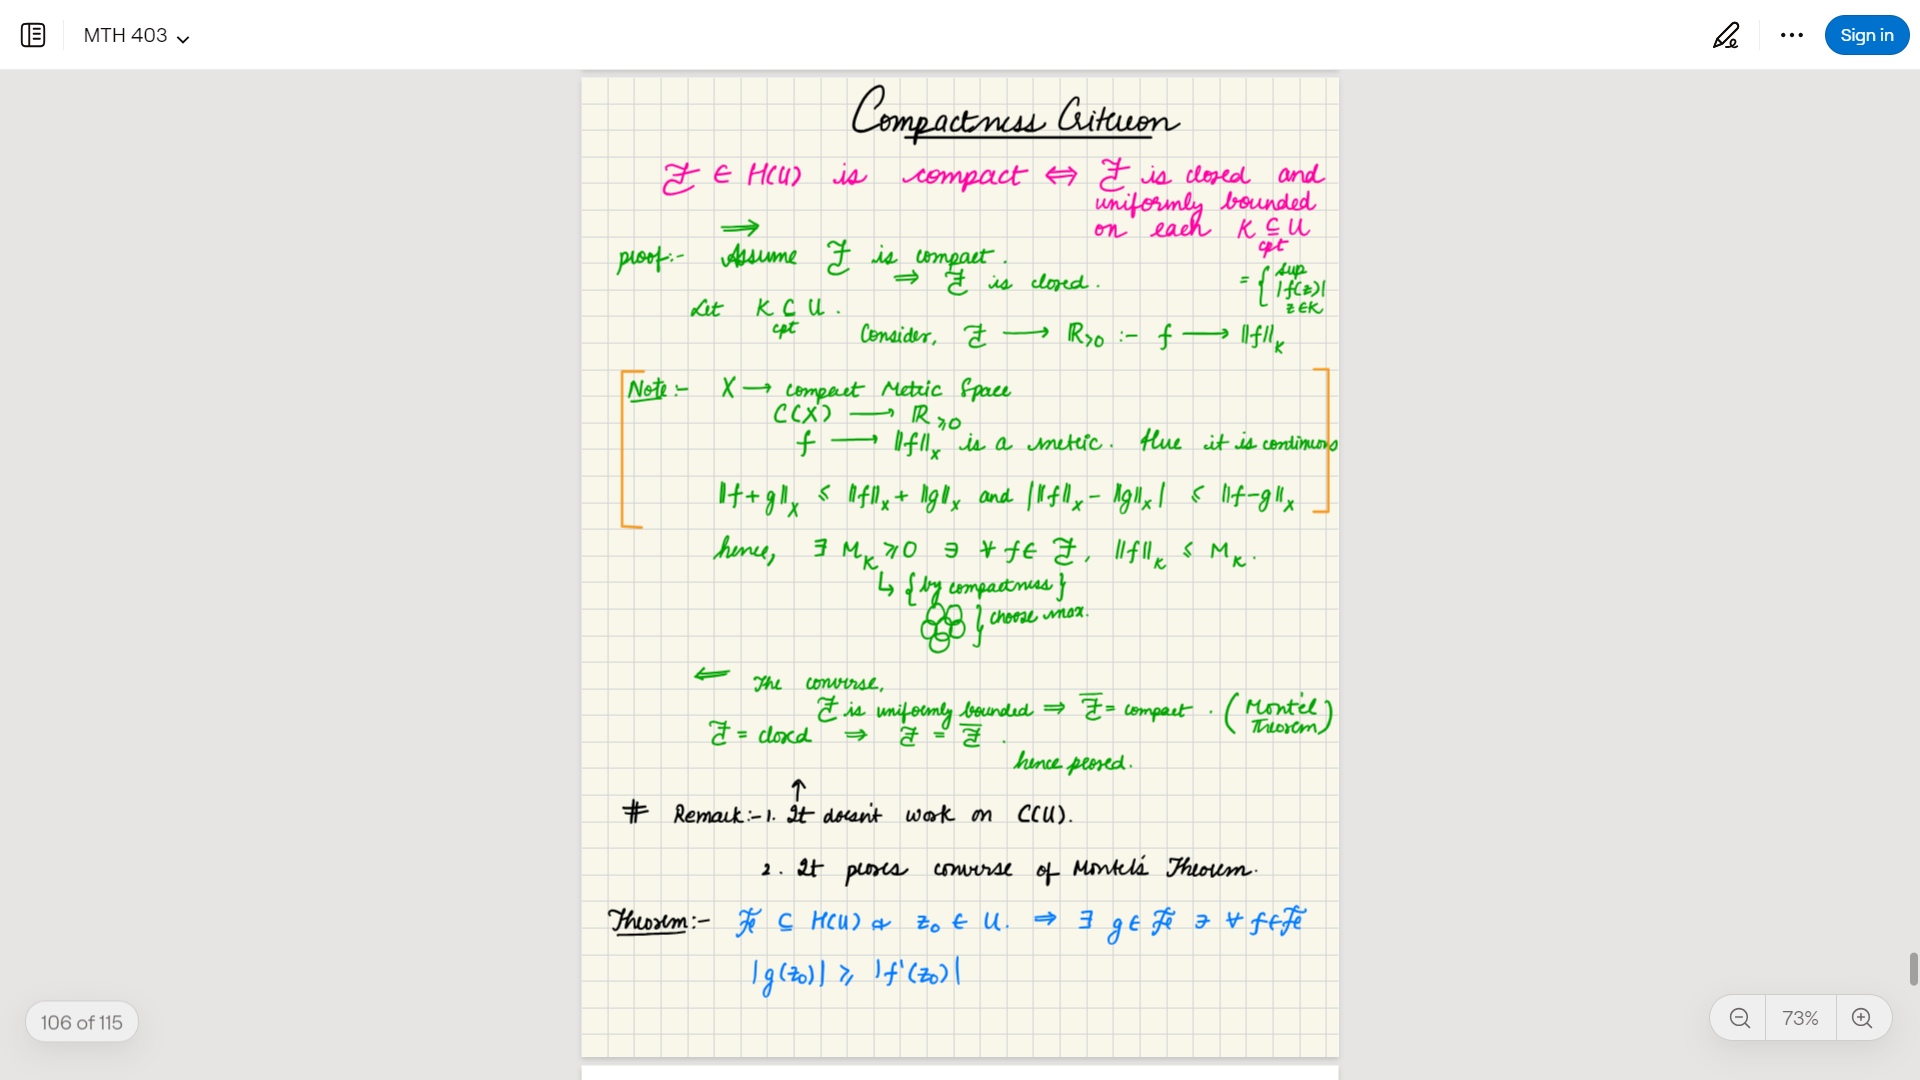 MTH 403
Sign in
Compactness Criterion
ℱ ∈ H(U) is compact ⇔ ℱ is closed and
uniformly bounded
on each K ⊆ U
cpt
⇒
proof:- Assume ℱ is compact.
⇒ ℱ is closed.
= { sup |f(z)| z∈K
Let K ⊆ U.
cpt
Consider, ℱ → ℝ>0 :- f → ||f||_K
Note:- X → compact Metric Space
C(X) → ℝ≥0
f → ||f||_X is a metric. Hue it is continuous
||f+g||_X ≤ ||f||_X + ||g||_X and | ||f||_X - ||g||_X | ≤ ||f-g||_X
hence, ∃ M_K ≥ 0 ∋ ∀ f ∈ ℱ, ||f||_K ≤ M_K.
↳ {by compactness}
} choose max.
⇐ The converse,
ℱ is uniformly bounded ⇒ ℱ̅ = compact. (Montel Theorem)
ℱ = closed ⇒ ℱ = ℱ̅.
hence proved.
↑
# Remark:- 1. It doesn't work on C(U).
2. It proves converse of Montel's Theorem.
Theorem:- ℱ ⊆ H(U) & z₀ ∈ U. ⇒ ∃ g ∈ ℱ ∋ ∀ f ∈ ℱ
|g(z₀)| ≥ |f'(z₀)|
106 of 115
73%